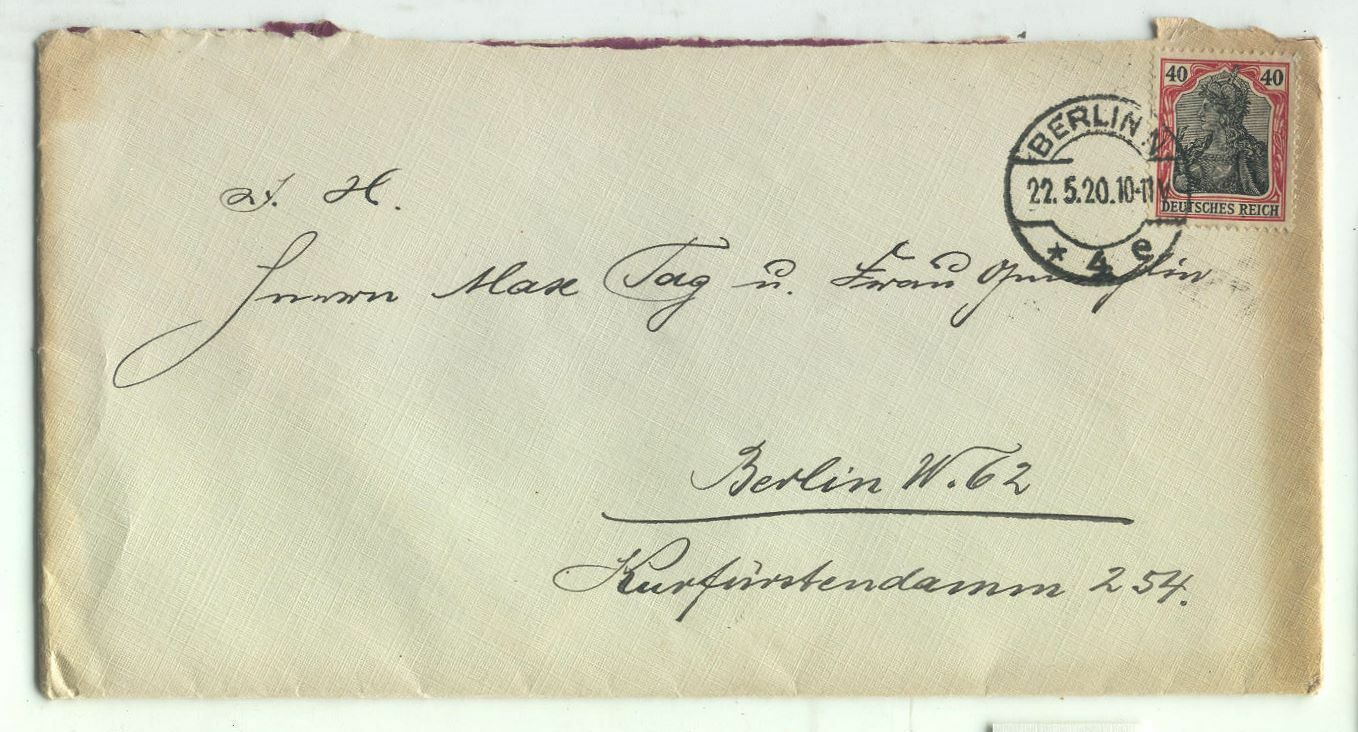 40 40
DEUTSCHES REICH
BERLIN N
22.5.20.10-11V
* 4 e
S. H.
Herrn Max Tag u. Frau Gemahlin
Berlin W. 62
Kurfürstendamm 254.